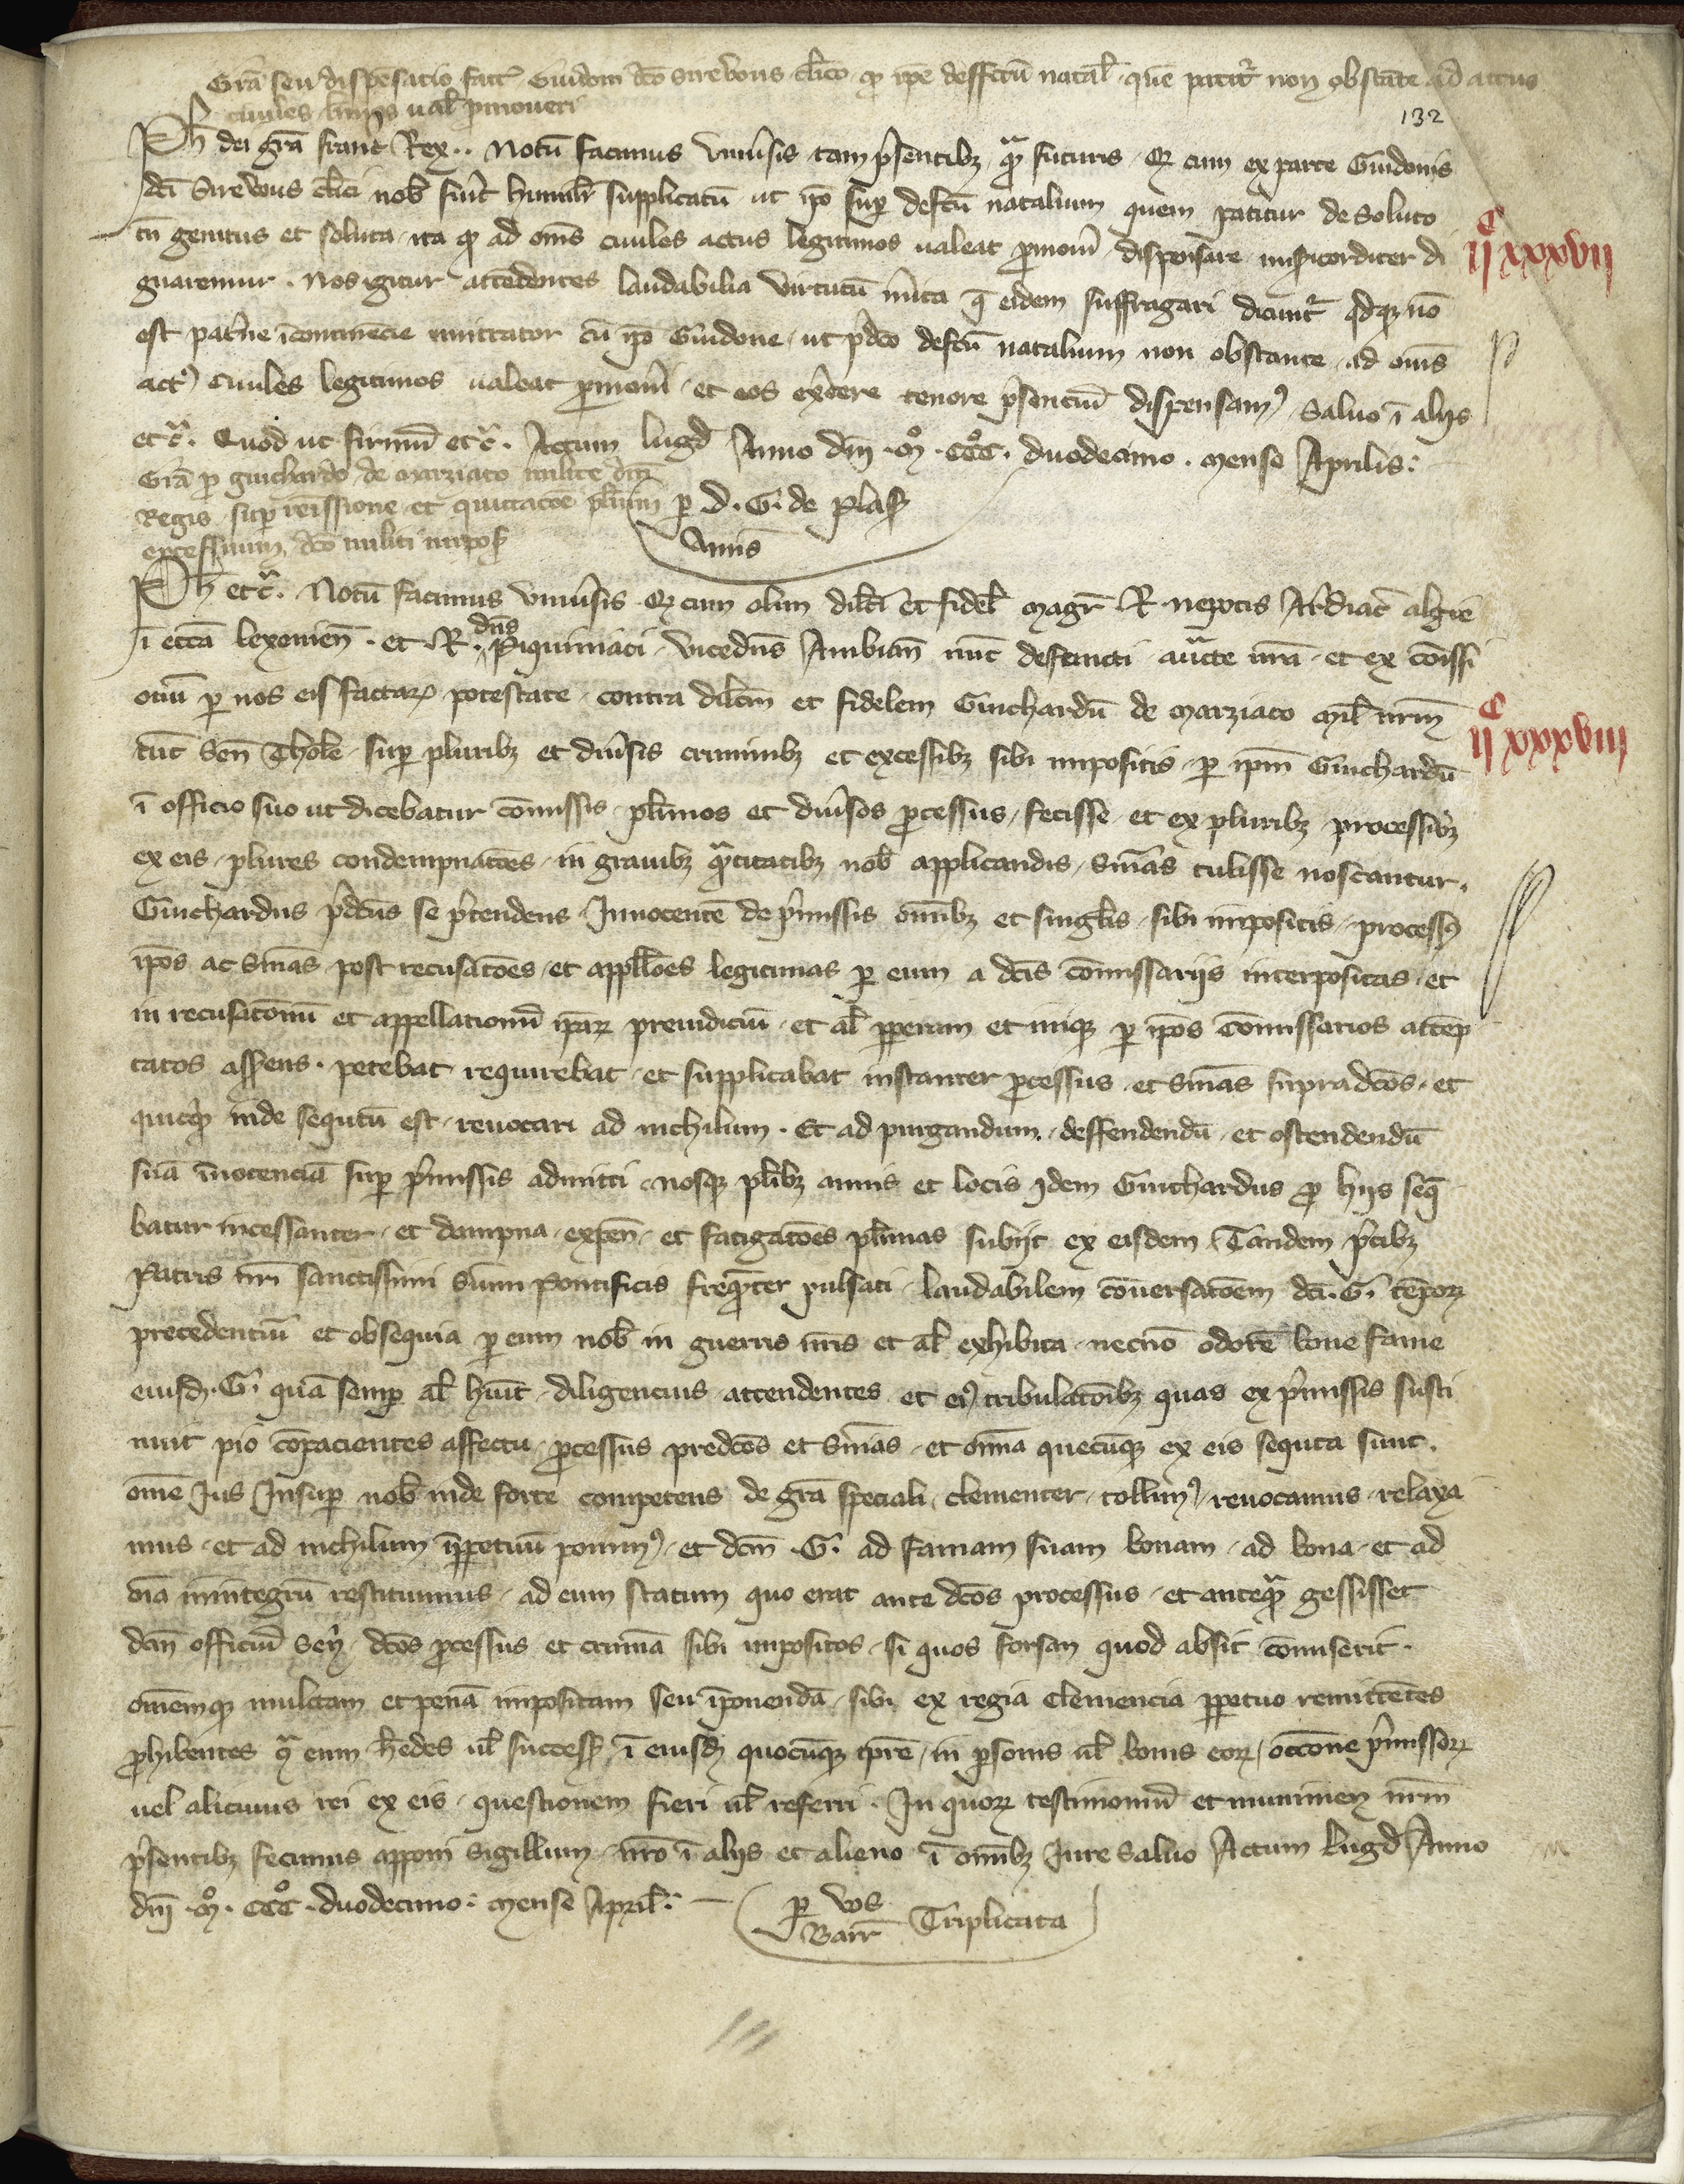 Grā seu dispensatio fact̄ Guidoni dc̄o Strebous cl̄ico qd ip̄e deffectū natal̄ quē patit̄ non obstāte ad actus
ciuiles legitimos ual̄ p̄moueri
132
Ph̄ dei grā franc̄ Rex.. Notū facimus vniu̓sis tam p̄sentibȝ q̄m futuris qd cum ex parte Guidonis
dc̄i Strebous cl̄ici nob̄ fuit̄ humilit̄ supplicatū ut ip̄o sup̄ defc̄tū natalium quem patitur de soluto
tn̄ genitus et soluta ita qd ad om̄s ciuiles actus legitimos ualeat p̄mou̓i dispensare misericorditer di
gnaremur. Nos igitur attēdentes laudabilia virtutū m̓ita q̄ eidem suffragari dicunt̄ qdqȝ nō
est pat̓ne īcontinēcie imittator cū ip̄o Guidone ut p̄dc̄o defc̄tū natalium non obstante ad om̄s
act9 ciuiles legitimos ualeat p̄mou̓i et eos ex̓cere tenore p̄senciū dispensam9 Saluo ī alijs
etc̄. Quod ut firmū etc̄. Actum lugd̄ Anno dn̄i .mº. CCCº. duodecimo. mense Aprilis:
ijC xxxvij
Grā p̄ guichardo de marziaco milite dn̄i
Regis sup̄ remissione et quittacōe pl̄ium
excessuum dc̄o militi imposit̄
p̄ D. G. de Plas̄
Amis
Ph̄ etc̄. Notū facimus vniu̓sis qd cum olim dil̄ci et fidel̄ magr̄ R. nepotis Ar̄diac̄ algie
ī ecc̄a lexouien̄. et R. dn̄s Piquiniaci vicedn̄s Ambian̄ nūc defuncti auc̄te nr̄a et ex cōmissi
onū p̄ nos eis factarȝ potestate contra dilc̄m et fidelem Guichardū de marziaco mil̄ nr̄m
tūc Sen̄ Thole sup̄ pluribȝ et diu̓sis criminibȝ et excessibȝ sibi impositis p̄ ip̄m Guichardū
ijC xxxviij
ī officio suo ut dicebatur cōmissis pl̄imos et diu̓sos p̄cessus fecisse et ex pluribȝ processibȝ
ex eis plures condempnatōes in grauibȝ q̄ntitatibȝ nob̄ applicandis, sn̄ias tulisse noscantur.
Guichardus p̄dc̄us se p̄tendens Innocentē de p̄missis om̄ibȝ et singl̄is sibi impositis process9
ip̄os ac sn̄ias post recusatōes et appll̄ōes legitimas p̄ eum a dc̄is cōmissarijs interpositas et
in recusatōnū et appellationū ip̄arȝ preiudiciū et al̄ pp̄eram et iniqȝ p̄ ip̄os cōmissarios attēp
tatos ass̓ens. petebat requirebat et supplicabat instanter p̄cessus et sn̄ias supradc̄os et
quicqd inde sequtū est reuocari ad nichilum. Et ad purgandum, deffendendū et ostendendū
suā īnocenciā sup̄ p̄missis admitti nosqȝ pl̄ibȝ annis et locis idem Guichardus p̄ hijs seq̄
batur incessanter et dampna expen̄ et fatigatōes pl̄imas subijt ex eisdem Tandem p̄cibȝ
Patris nr̄i sanctissimi Sum̄i Pontificis freq̄nter pulsati laudabilem cōuersatōem dc̄i. G. tēporȝ
precedentiū et obsequia p̄ eum nob̄ in guerris nr̄is et al̄ exhibita necnō odorē bone fame
eiusdȝ. G. quā semp̄ al̄ hūit diligencius attendentes et ei9 tribulatōibȝ quas ex p̄missis susti
nuit pio cōpacientes affectu, p̄cessus predc̄os et sn̄ias et om̄ia quecūqȝ ex eis sequta sunt.
om̄e Ius Insup̄ nob̄ inde forte competens de grā speciali clementer tollim9 reuocamus relaxa
mus et ad nichilum īpp̄etuū ponim9 et dc̄m G. ad famam suam bonam ad bona et ad
oīa inintegrū restituimus ad eum statum quo erat ante dc̄os processus et anteq̄m gessisset
dc̄m officiū sen̄ dc̄os p̄cessus et crimīa sibi impositos si quos forsan quod absit cōmiserit.
om̄emqȝ mulctam et penā impositam seu īponendā sibi ex regia clemencia pp̄etuo remittētes
p̄hibentes q̄ eum h̄edes ul̄ success̄ ī eiusdȝ quocūqȝ tp̄re in p̄sonis ul̄ bonis eorȝ occōne p̄missorȝ
uel alicuius rei ex eis questionem fieri ul̄ referri. In quorȝ testimoniū et munimen nr̄m
p̄sentibȝ fecimus apponi sigillum nr̄o ī alijs et alieno ī om̄ibȝ Iure saluo Actum Lugd̄ Anno
dn̄i .mº. CCCº. duodecimo: mense April̄:
p̄ vos
Barr̄ Triplicata